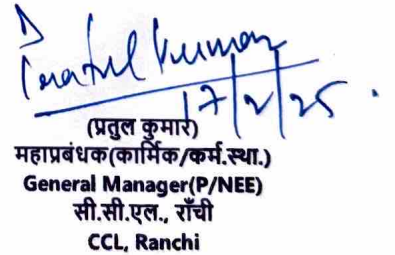 Pratul Kumar
17/2/25.
(प्रतुल कुमार)
महाप्रबंधक(कार्मिक/कर्म.स्था.)
General Manager(P/NEE)
सी.सी.एल., राँची
CCL, Ranchi